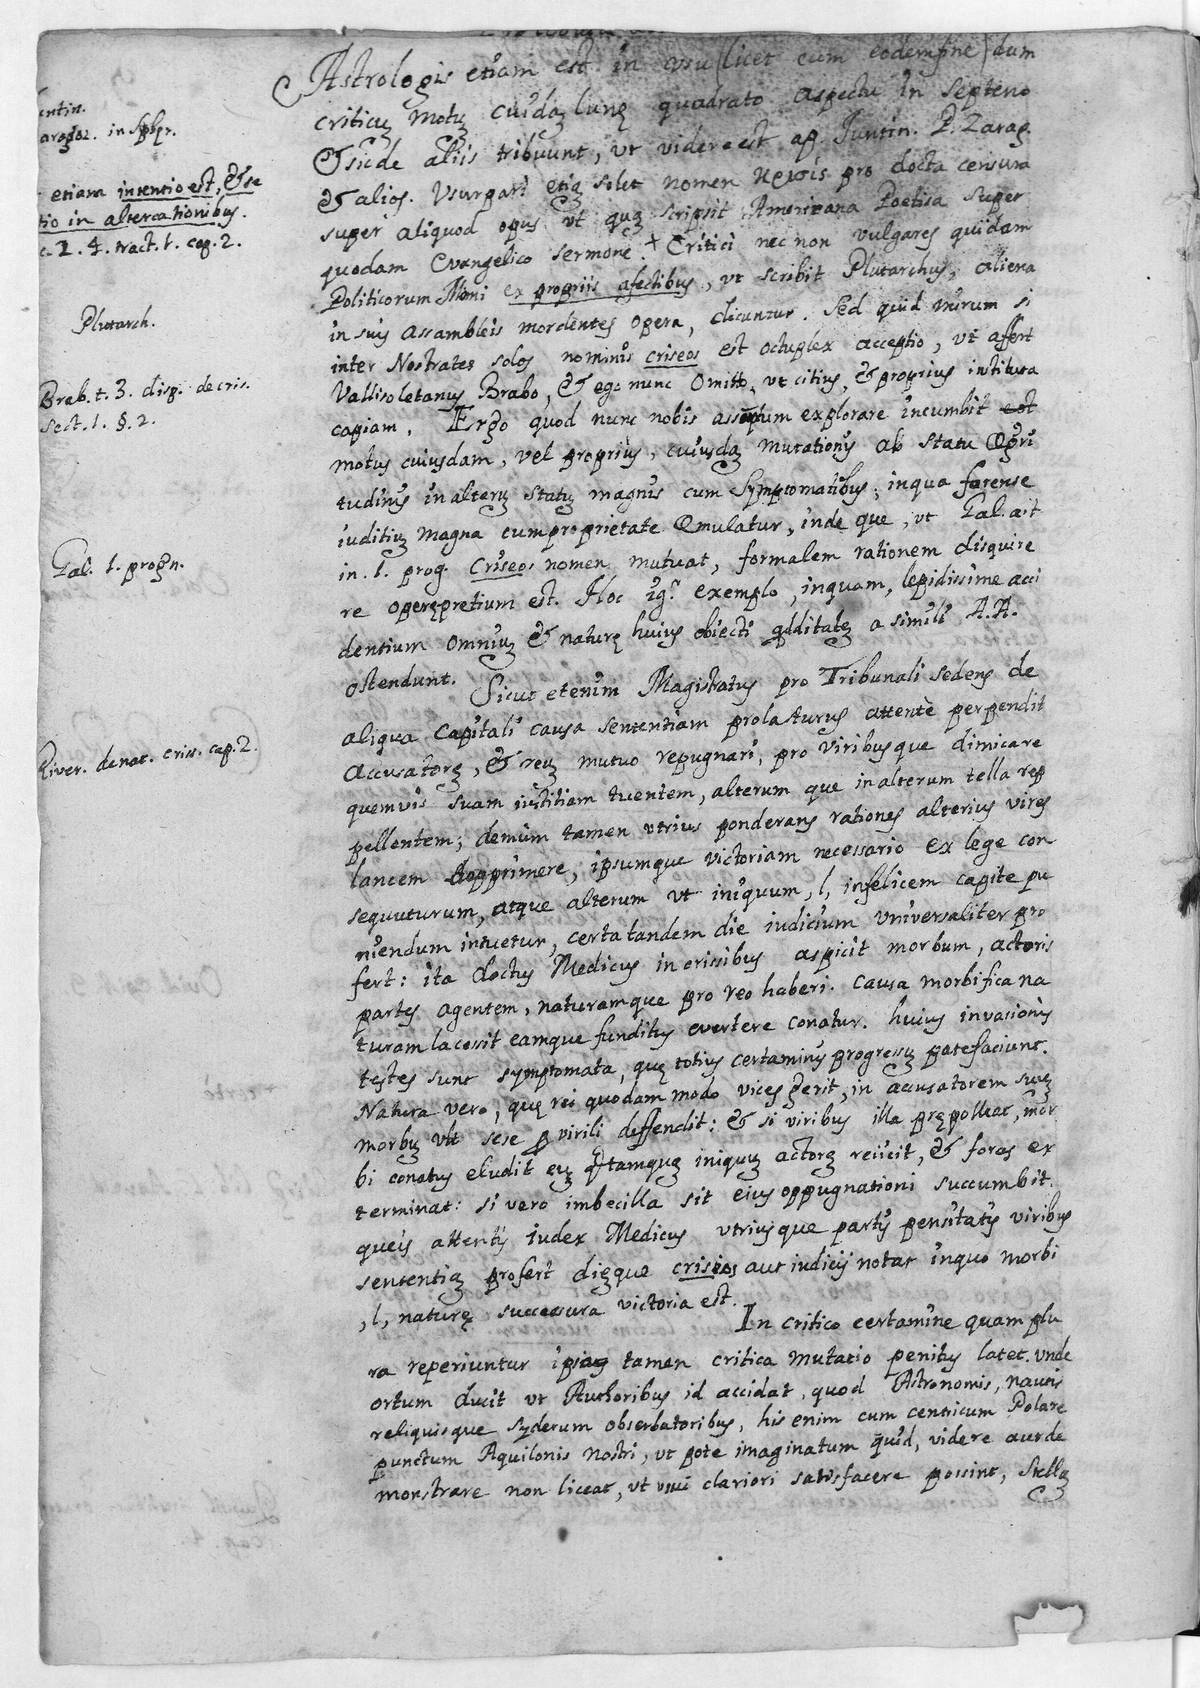 Astrologis etiam est in usu (licet cum eodem fine) dum
criticũ motũ cuidã lunę quadrato aspectu in septeno
& sic de aliis tribuunt, ut videre est ap. Juntin. P. Zarag.
& alios. Usurpari etiã solet nomen κρισις pro docta censura
super aliquod opus ut quã scripsit Americana Poetisa super
quodam Evangelico sermone. + Critici nec non vulgares quidam
Politicorum Momi ex propriis afectibus, ut scribit Plutarchus, aliena
in suis assambleis mordentes opera, dicuntur. Sed quid mirum si
inter Nostrates solos nominis criseos est octuplex acceptio, ut affert
Vallisoletanus Brabo, & ego nunc omitto, ut citius, & proprius intitura
capiam. Ergo quod nunc nobis assũptum explorare incumbit est
motus cuiusdam, vel proprius, cuiusdã mutationis ab statu ęgri
tudinis in alterũ statũ magnis cum symptomatibus; in qua forense
iuditiũ magna cum proprietate ęmulatur, inde que, ut Gal. ait
in. 1. prog. Criseos nomen mutuat, formalem rationem disquire
re operępretium est. Hoc igr. exemplo, inquam, lepidissime acci
dentium omniũ & naturę huius obiecti qdditatẽ a simili A.A.
ostendunt. Sicut etenim Magistratus pro Tribunali sedens de
aliqua capitali causa sententiam prolaturus attentè perpendit
Accusatorẽ, & reũ mutuo repugnari, pro viribus que dimicare
quemvis suam iustitiam tuentem, alterum que in alterum tella rep
pellentem; demùm tamen utrius ponderans rationes alterius vires
lancem opprimere, ipsumque victoriam necessario ex lege con
sequuturum, atque alterum ut iniquum, l, infelicem capite pu
niendum intuetur, certa tandem die iudicium universaliter pro
fert: ita doctus Medicus in crisibus aspicit morbum, actoris
partes agentem, naturamque pro reo haberi. causa morbifica na
turam lacessit eamque funditus evertere conatur. huius invasionis
testes sunt symptomata, quę totius certaminis progressũ patefaciunt.
Natura vero, quę rei quodam modo vices gerit, in accusatorem suũ
morbũ ult sese p virili deffendit: & si viribus illa prępolleat, mor
bi conatus eludit eũ tamquã iniquũ actorẽ reiicit, & foras ex
terminat: si vero imbecilla sit eius oppugnationi succumbit.
queis attentis iudex Medicus utriusque partis pensitatis viribus
sententiã profert diẽque criseos aut iudicij notat in quo morbi
, l, naturę successura victoria est.
In critico certamine quam plu
ra reperiuntur ipsa tamen critica mutatio penitus latet. unde
ortum ducit ut Authoribus id accidat, quod Astronomis, nautis
reliquisque syderum obserbatoribus, his enim cum centricum Polare
punctum Aquilonis nostri, ut pote imaginatum quid, videre aut de
monstrare non liceat, ut vivi clariori satisfacere possint, stellã
entin.
aragoz. in Sphęr.
etiam intentio est, & se
tio in altercationibus.
c. 2. 4. tract. 1. cap. 2.
Plutarch.
Brab. t. 3. disp. de cris.
sect. 1. §. 2.
Gal. 1. progn.
River. de nat. criss. cap. 2.